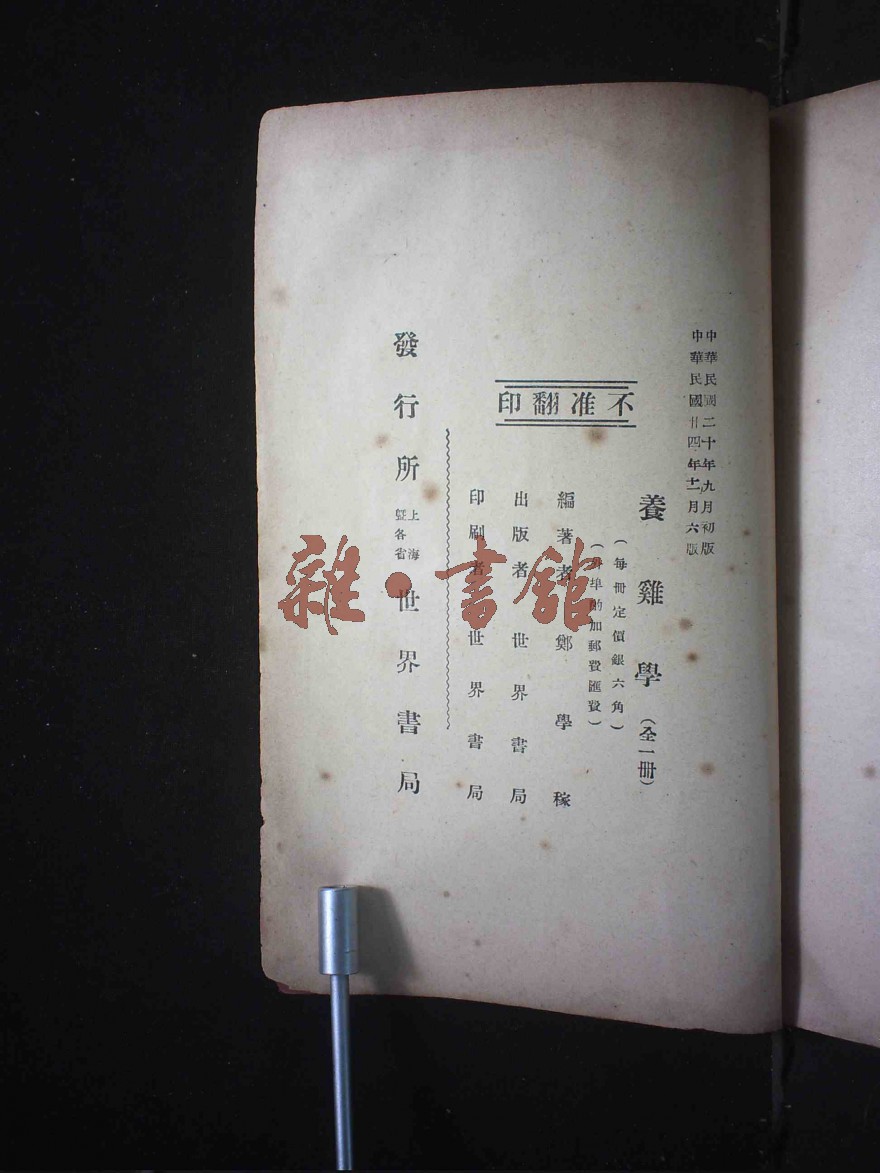 中華民國二十年九月初版
中華民國廿四年十一月六版
養雞學（全一冊）
（每冊定價銀六角）
（外埠酌加郵費匯費）
不准翻印
編著者 鄭學稼
出版者 世界書局
印刷者 世界書局
發行所 上海暨各省 世界書局
雜·書館